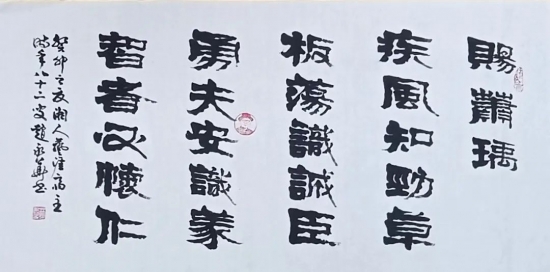 賜蕭瑀
疾風知勁草
板蕩識誠臣
勇夫安識義
智者必懷仁
癸卯之夏湘人
時年八十二叟趙